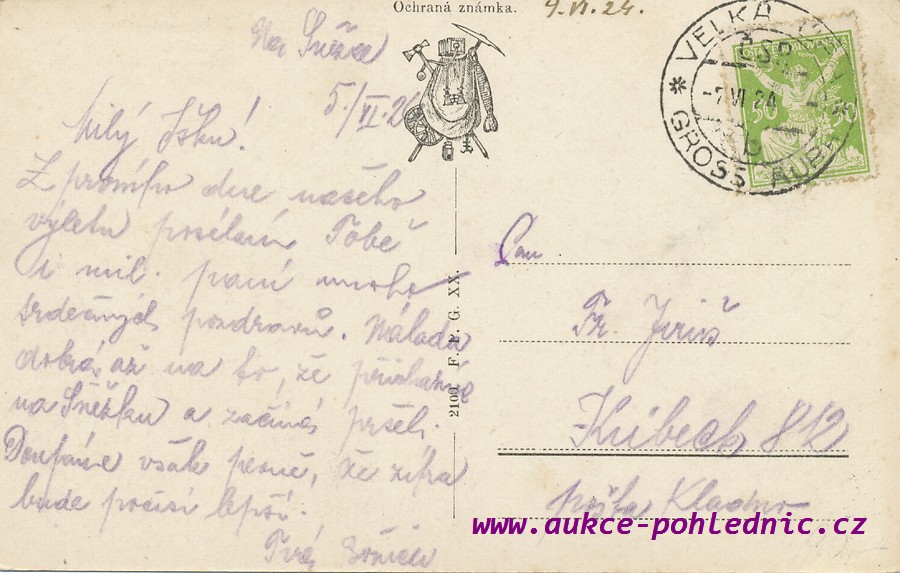 Ochraná známka.
4.VI.24.
Na Sněžce
5./VI.24
Milý
Z prvního dne našeho
výletu posílám Tobě
i mil. paní mnoho
srdečných pozdravů. Nálada
dobrá, až na to, že přicházíme
na Sněžku a začíná pršeti.
Doufáme však pevně, že zítra
bude počasí lepší.
Tvá
2100 F. P. G. XX.
* VELKÁ
GROSS AUPA
ČSR
-7.VI.24
b
POŠTA ČESKOSLOVENSKÁ
50 50
Pan
Fr. Jiriš
812
pošta Kladno
www.aukce-pohlednic.cz